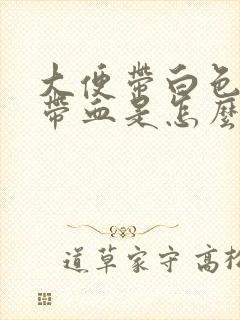 大便带白色
带血是怎麽
道草家守高松